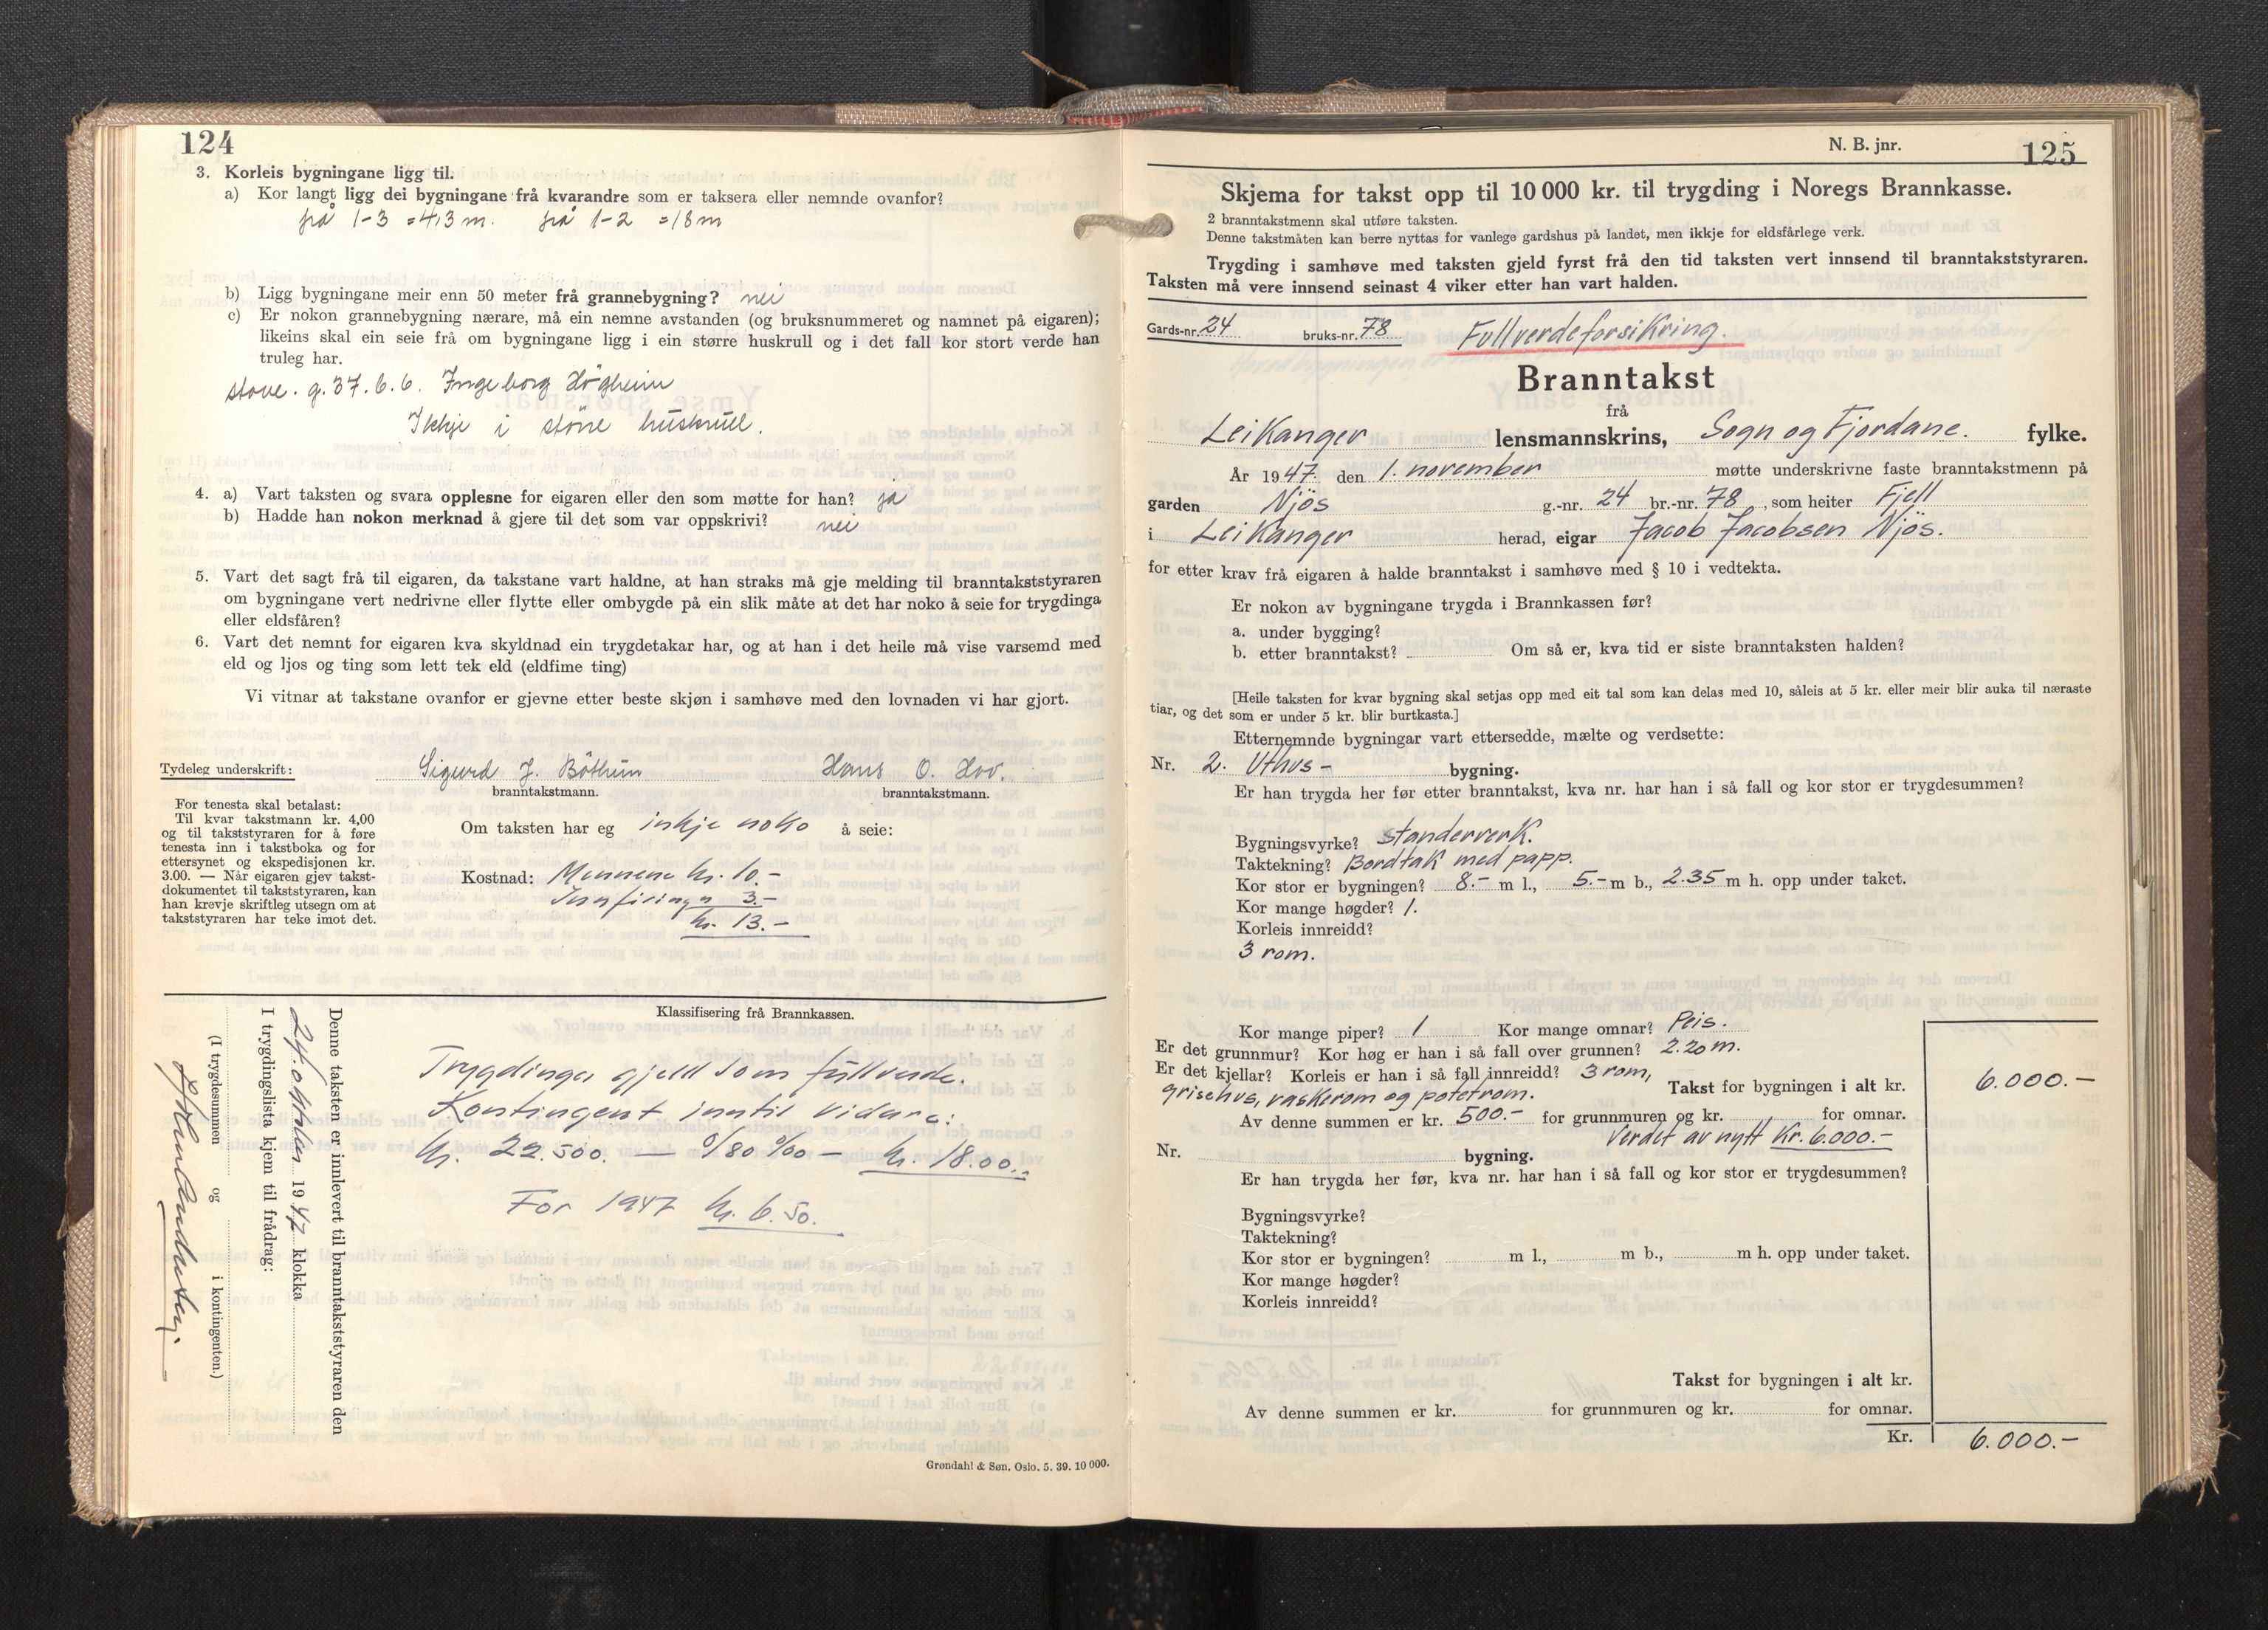 124
3. Korleis bygningane ligg til.
a) Kor langt ligg dei bygningane frå kvarandre som er taksera eller nemnde ovanfor?
frå 1-3 = 4,3 m. frå 1-2 = 18 m
b) Ligg bygningane meir enn 50 meter frå grannebygning? nei
c) Er nokon grannebygning nærare, må ein nemne avstanden (og bruksnummeret og namnet på eigaren);
likeins skal ein seie frå om bygningane ligg i ein større huskrull og i det fall kor stort verde han
truleg har.
stove. g. 37. b. 6. Ingeborg Högheim
Ikkje i större huskrull.
4. a) Vart taksten og svara opplesne for eigaren eller den som møtte for han? ja
b) Hadde han nokon merknad å gjere til det som var oppskrivi? nei
5. Vart det sagt frå til eigaren, da takstane vart haldne, at han straks må gje melding til branntakststyraren
om bygningane vert nedrivne eller flytte eller ombygde på ein slik måte at det har noko å seie for trygdinga
eller eldsfåren?
6. Vart det nemnt for eigaren kva skyldnad ein trygdetakar har, og at han i det heile må vise varsemd med
eld og ljos og ting som lett tek eld (eldfime ting)
Vi vitnar at takstane ovanfor er gjevne etter beste skjøn i samhøve med den lovnaden vi har gjort.
Tydeleg underskrift: Sigurd J. Böthun Hans O. Hov.
branntakstmann. branntakstmann.
For tenesta skal betalast:
Til kvar takstmann kr. 4,00
og til takststyraren for å føre
tenesta inn i takstboka og for
ettersynet og ekspedisjonen kr.
3.00. — Når eigaren gjev takst-
dokumentet til takststyraren, kan
han krevje skriftleg utsegn om at
takststyraren har teke imot det.
Om taksten har eg inkje noko å seie:
Kostnad: Mennene kr. 10.-
Innföring " 3.-
kr. 13.-
Klassifisering frå Brannkassen.
Trygdinga gjeld som fullverde.
Kontingent inntil vidare:
kr. 22.500. — 0/80 ‰ — kr. 18.00.-
For 1947 kr. 6.50.
Denne taksten er innlevert til branntakststyraren den
24. oktober 1947 klokka
I trygdingslista kjem til frådrag:
(I trygdesummen og i kontingenten.)
Grøndahl & Søn. Oslo. 5. 39. 10 000.
N. B. jnr. 125
Skjema for takst opp til 10 000 kr. til trygding i Noregs Brannkasse.
2 branntakstmenn skal utføre taksten.
Denne takstmåten kan berre nyttas for vanlege gardshus på landet, men ikkje for eldsfårlege verk.
Trygding i samhøve med taksten gjeld fyrst frå den tid taksten vert innsend til branntakststyraren.
Taksten må vere innsend seinast 4 viker etter han vart halden.
Gards-nr. 24 bruks-nr. 78 Fullverdeforsikring.
Branntakst
frå
Leikanger lensmannskrins, Sogn og Fjordane. fylke.
År 1947. den 1. november møtte underskrivne faste branntakstmenn på
garden Njös g.-nr. 24 br.-nr. 78, som heiter Fjell
i Leikanger herad, eigar Jacob Jacobsen Njös.
for etter krav frå eigaren å halde branntakst i samhøve med § 10 i vedtekta.
Er nokon av bygningane trygda i Brannkassen før?
a. under bygging?
b. etter branntakst? Om så er, kva tid er siste branntaksten halden?
[Heile taksten for kvar bygning skal setjas opp med eit tal som kan delas med 10, såleis at 5 kr. eller meir blir auka til næraste
tiar, og det som er under 5 kr. blir burtkasta.]
Etternemnde bygningar vart ettersedde, mælte og verdsette:
Nr. 2. Uthus - bygning.
Er han trygda her før etter branntakst, kva nr. har han i så fall og kor stor er trygdesummen?
Bygningsvyrke? standerverk.
Taktekning? Bordtak med papp.
Kor stor er bygningen? 8.- m l., 5.- m b., 2.35 m h. opp under taket.
Kor mange høgder? 1.
Korleis innreidd?
3 rom.
Kor mange piper? 1 Kor mange omnar? Peis.
Er det grunnmur? Kor høg er han i så fall over grunnen? 2.20 m.
Er det kjellar? Korleis er han i så fall innreidd? 3 rom,
grisehus, vaskerom og potetrom. Takst for bygningen i alt kr. 6.000.-
Av denne summen er kr. 500.- for grunnmuren og kr. for omnar.
Verdet av nytt Kr. 6.000.-
Nr. bygning.
Er han trygda her før, kva nr. har han i så fall og kor stor er trygdesummen?
Bygningsvyrke?
Taktekning?
Kor stor er bygningen? m l., m b., m h. opp under taket.
Kor mange høgder?
Korleis innreidd?
Takst for bygningen i alt kr.
Av denne summen er kr. for grunnmuren og kr. for omnar.
Kr. 6.000.-